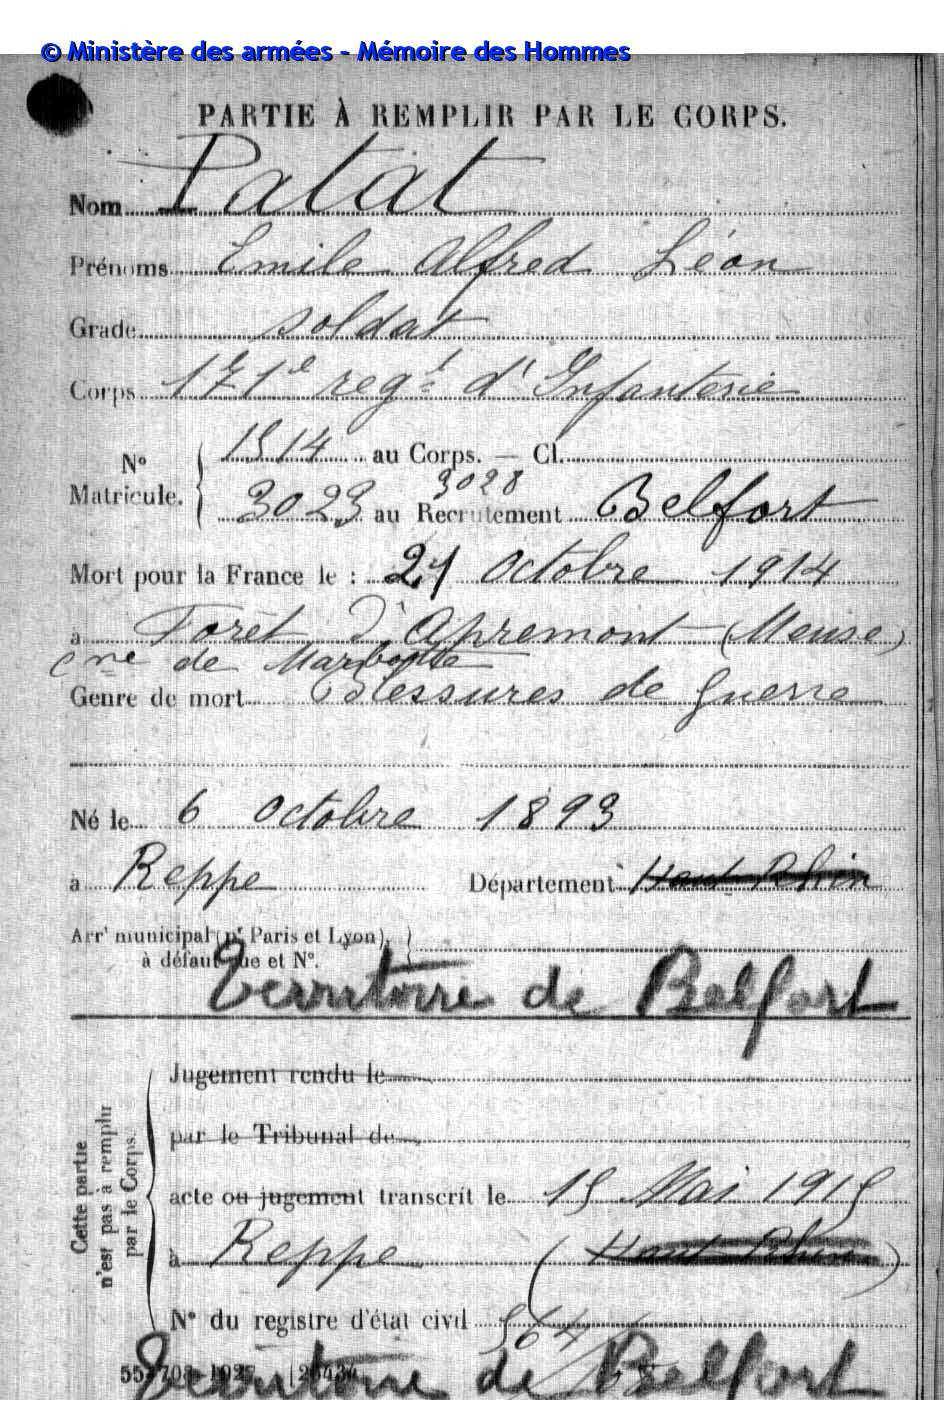 © Ministère des armées - Mémoire des Hommes
PARTIE À REMPLIR PAR LE CORPS.
Nom Patat
Prénoms Emile Alfred Léon
Grade soldat
Corps 171e regt d'Infanterie
N° Matricule. 1514 au Corps. — Cl.
3028
3023 au Recrutement Belfort
Mort pour la France le : 21 Octobre 1914
à Forêt d'Apremont (Meuse)
Cne de Marbotte
Genre de mort Blessures de guerre
Né le 6 Octobre 1893
à Reppe Département Haut Rhin
Arrt municipal (pr Paris et Lyon),
à défaut rue et N°.
Territoire de Belfort
Cette partie n'est pas à remplir par le Corps.
Jugement rendu le
par le Tribunal de
acte ou jugement transcrit le 15 Mai 1915
à Reppe (Haut Rhin)
N° du registre d'état civil
Territoire de Belfort